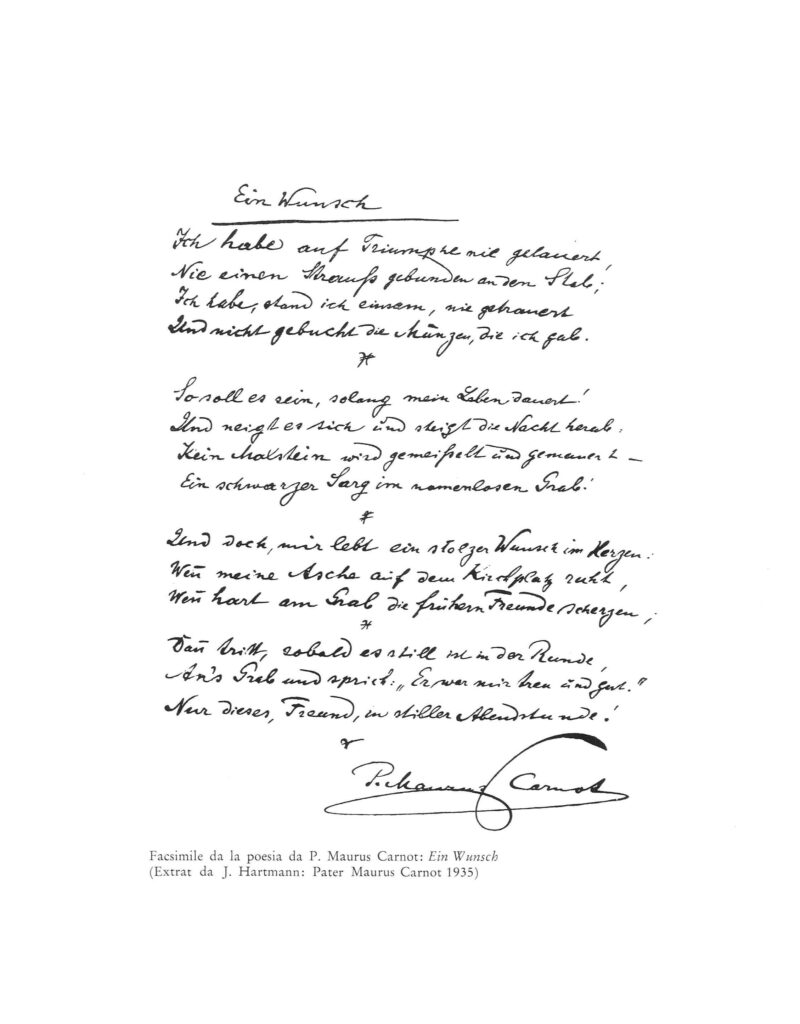 Ein Wunsch
Ich habe auf Triumphe nie gelauert,
Nie einen Strauß gebunden an den Stab;
Ich habe, stand ich einsam, nie getrauert
Und nicht gebucht die Münzen, die ich gab.
*
So soll es sein, solang mein Leben dauert!
Und neigt es sich und steigt die Nacht herab:
Kein Malstein wird gemeißelt und gemauert –
Ein schwarzer Sarg im namenlosen Grab!
*
Und doch, mir lebt ein stolzer Wunsch im Herzen:
Wen̄ meine Asche auf dem Kirchplatz ruht,
Wen̄ hart am Grab die frühern Freunde scherzen;
*
Dan̄ tritt, sobald es still ist in der Runde,
An's Grab und sprich: „Er war mir treu und gut."
Nur dieses, Freund, in stiller Abendstunde!
P. Maurus Carnot
Facsimile da la poesia da P. Maurus Carnot: Ein Wunsch
(Extrat da J. Hartmann: Pater Maurus Carnot 1935)